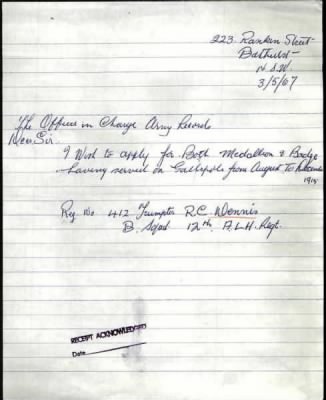 223. Rankin Street
Bathurst
N.S.W.
3/5/67
The Officer in Charge Army Records
Dear Sir.
I Wish to apply for Both Medallion & Badge
having served on Gallipoli from August To December
1915
Reg. No 412 Trumpter R.C. Dennis
B. Sqad 12th. A.L.H. Regt.
RECEIPT ACKNOWLEDGED
Date